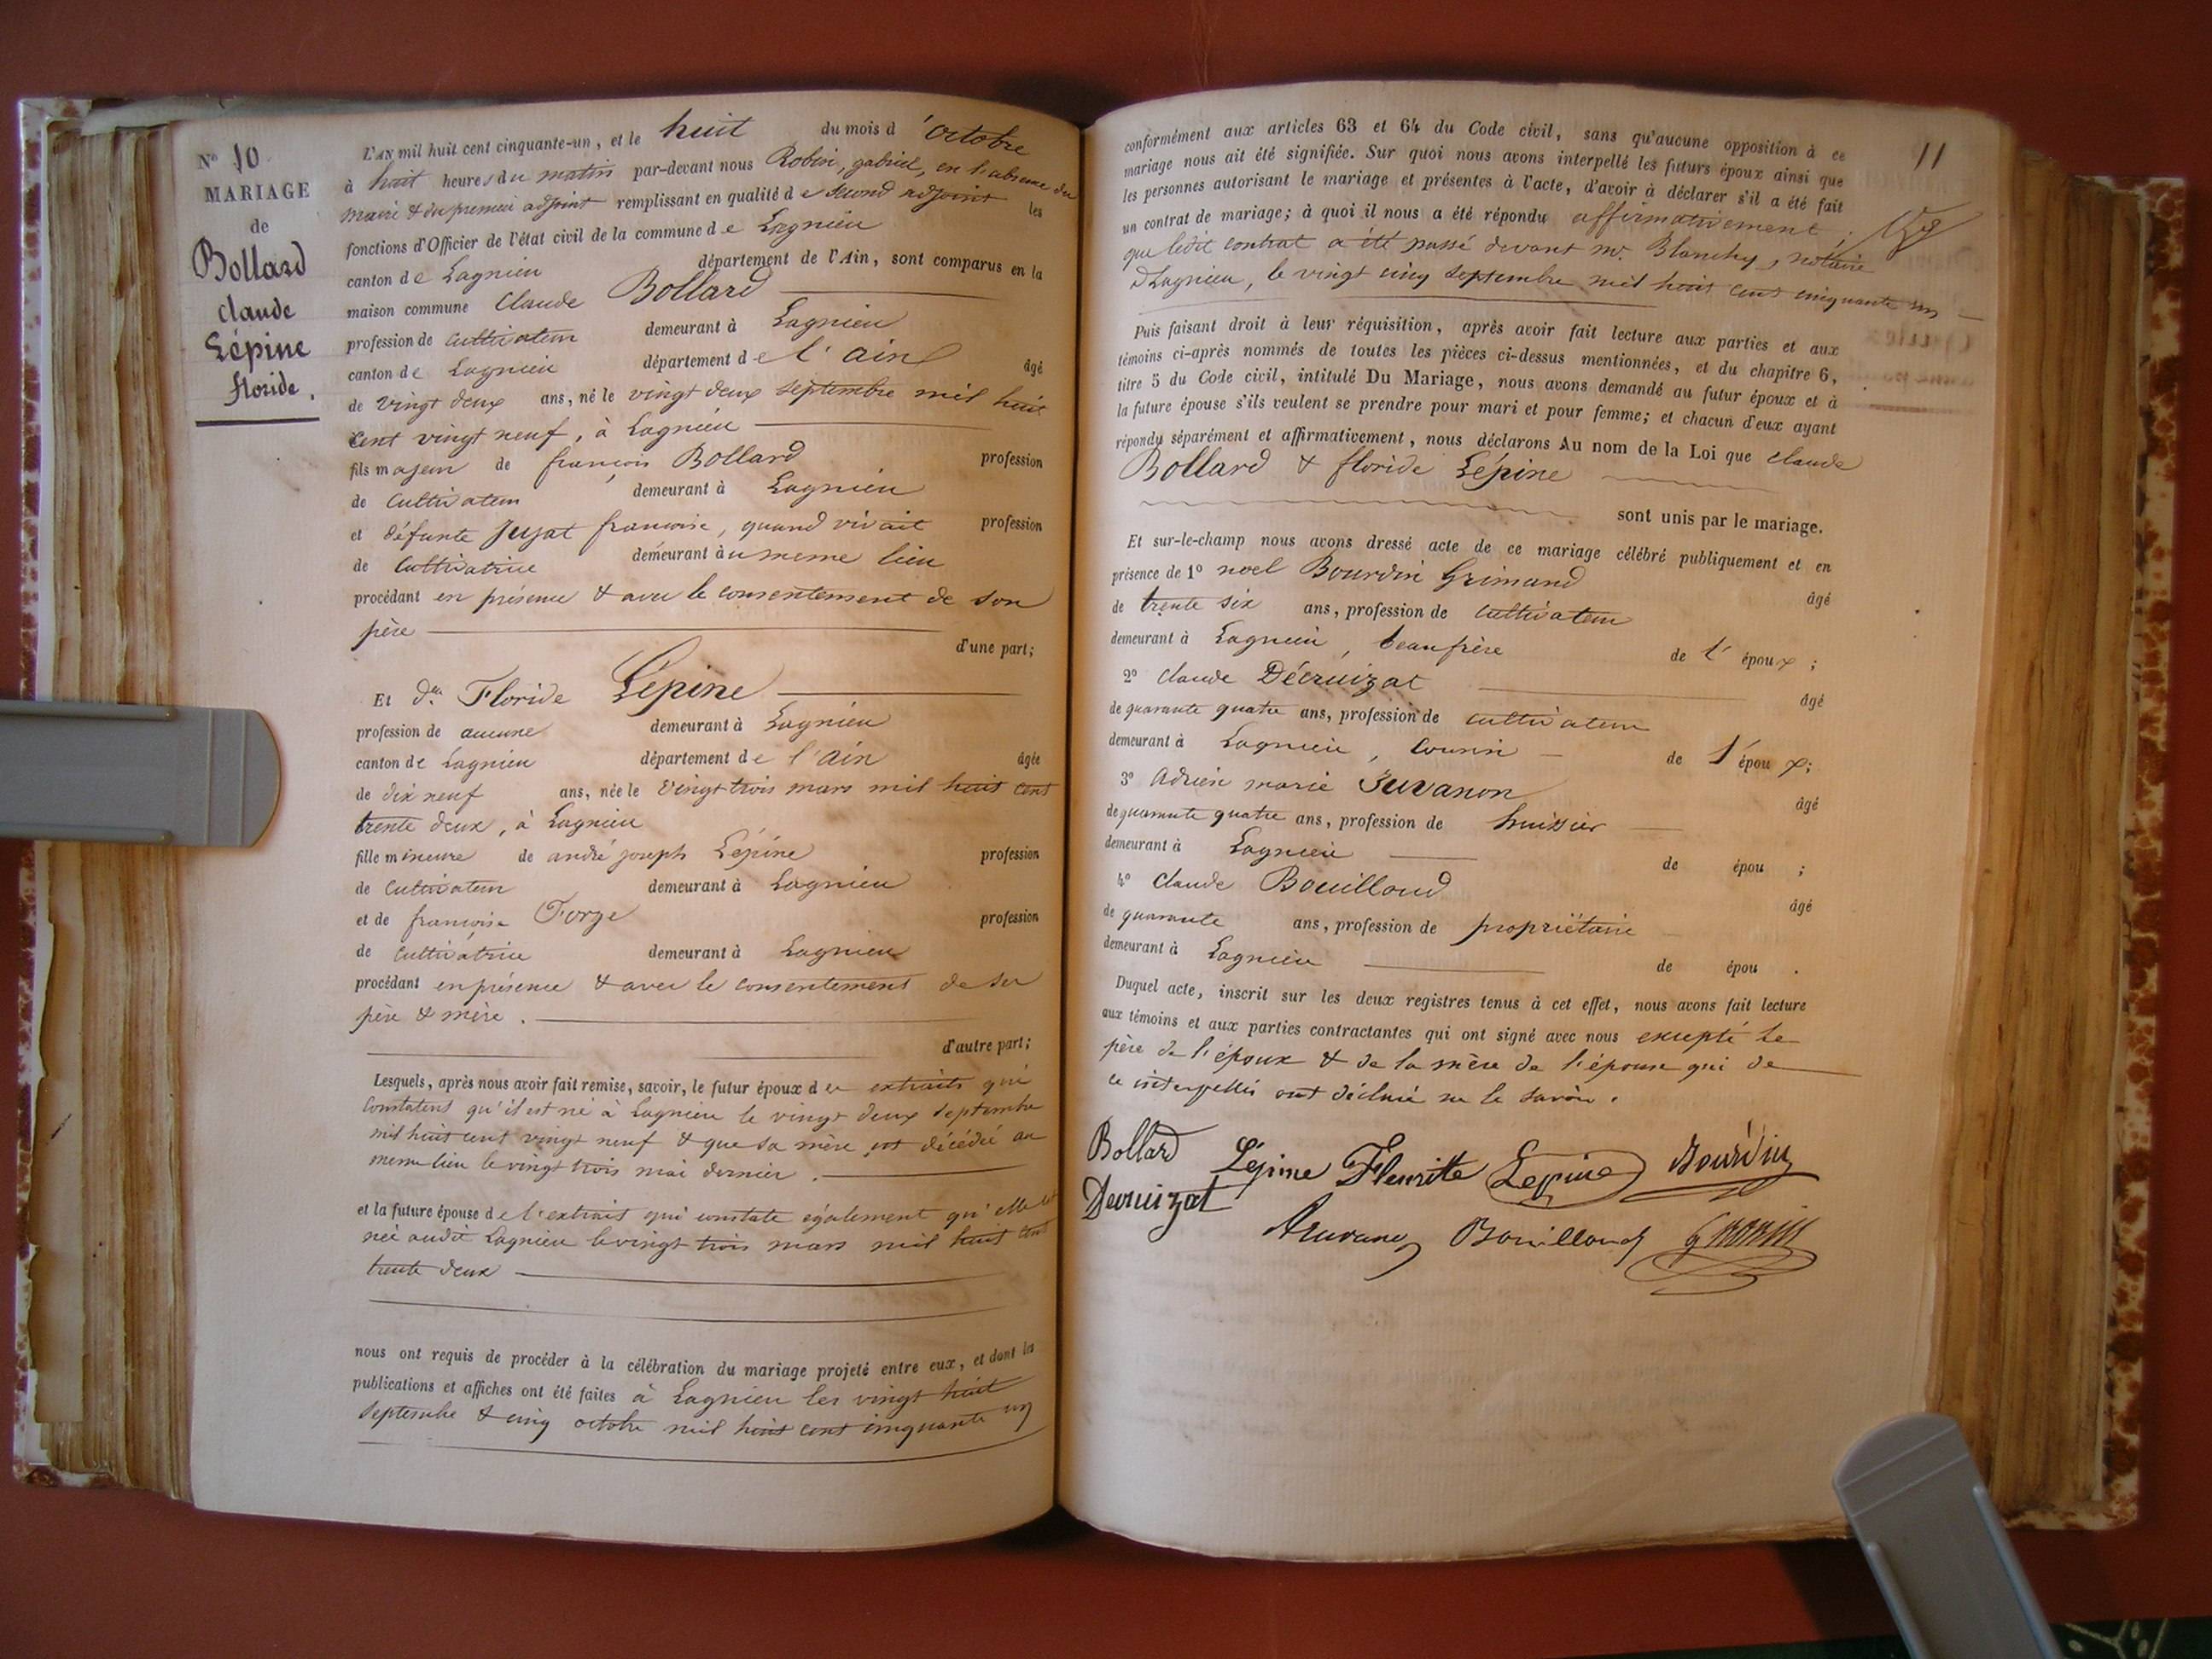 N° 10
MARIAGE
de
Bollard
claude
Lépine
floride.
L'AN mil huit cent cinquante-un, et le huit du mois d'octobre
à huit heures du matin par-devant nous Robin, gabriel, en l'absence du
maire & du premier adjoint remplissant en qualité de second adjoint les
fonctions d'Officier de l'état civil de la commune de Lagnieu
canton de Lagnieu département de l'Ain, sont comparus en la
maison commune Claude Bollard
profession de cultivateur demeurant à Lagnieu
canton de Lagnieu département de l'ain âgé
de vingt deux ans, né le vingt deux septembre mil huit
cent vingt neuf, à Lagnieu
fils majeur de françois Bollard profession
de cultivateur demeurant à Lagnieu
et défunte Jujat francoise, quand vivait profession
de cultivatrice demeurant au meme lieu
procédant en présence & avec le consentement de son
père
d'une part;
Et dlle Floride Lépine
profession de aucune demeurant à Lagnieu
canton de Lagnieu département de l'ain âgée
de dix neuf ans, née le vingt trois mars mil huit cent
trente deux, à Lagnieu
fille mineure de andré joseph Lépine profession
de cultivateur demeurant à Lagnieu
et de françoise Forge profession
de cultivatrice demeurant à Lagnieu
procédant en présence & avec le consentement de ses
père & mère.
d'autre part;
Lesquels, après nous avoir fait remise, savoir, le futur époux des extraits qui
constatent qu'il est né à Lagnieu le vingt deux septembre
mil huit cent vingt neuf & que sa mère est décédée au
meme lieu le vingt trois mai dernier.
et la future épouse de l'extrait qui constate également qu'elle est
née audit Lagnieu le vingt trois mars mil huit cent
trente deux
nous ont requis de procéder à la célébration du mariage projeté entre eux, et dont les
publications et affiches ont été faites à Lagnieu les vingt huit
septembre & cinq octobre mil huit cent cinquante un
11
conformément aux articles 63 et 64 du Code civil, sans qu'aucune opposition à ce
mariage nous ait été signifiée. Sur quoi nous avons interpellé les futurs époux ainsi que
les personnes autorisant le mariage et présentes à l'acte, d'avoir à déclarer s'il a été fait
un contrat de mariage; à quoi il nous a été répondu affirmativement;
que ledit contrat a été passé devant me. Blanchy, notaire
à Lagnieu, le vingt cinq septembre mil huit cent cinquante un
Puis faisant droit à leur réquisition, après avoir fait lecture aux parties et aux
témoins ci-après nommés de toutes les pièces ci-dessus mentionnées, et du chapitre 6,
titre 5 du Code civil, intitulé Du Mariage, nous avons demandé au futur époux et à
la future épouse s'ils veulent se prendre pour mari et pour femme; et chacun d'eux ayant
répondu séparément et affirmativement, nous déclarons Au nom de la Loi que claude
Bollard & floride Lépine
sont unis par le mariage.
Et sur-le-champ nous avons dressé acte de ce mariage célébré publiquement et en
présence de 1° noel Bourdin Grimand âgé
de trente six ans, profession de cultivateur
demeurant à Lagnieu, beaufrère de l'époux;
2° claude Décruizat âgé
de quarante quatre ans, profession de cultivateur
demeurant à Lagnieu, cousin de l'époux;
3° Adrien marie Juvanon âgé
de quarante quatre ans, profession de huissier
demeurant à Lagnieu de épou ;
4° claude Bouilloud âgé
de quarante ans, profession de propriétaire
demeurant à Lagnieu de épou .
Duquel acte, inscrit sur les deux registres tenus à cet effet, nous avons fait lecture
aux témoins et aux parties contractantes qui ont signé avec nous excepté le
père de l'époux & de la mère de l'épouse qui de
ce interpellés ont déclaré ne le savoir.
Bollard Lépine Fleuritte Lepine Bourdin
Decruizat
Juvanon Bouilloud G Robin